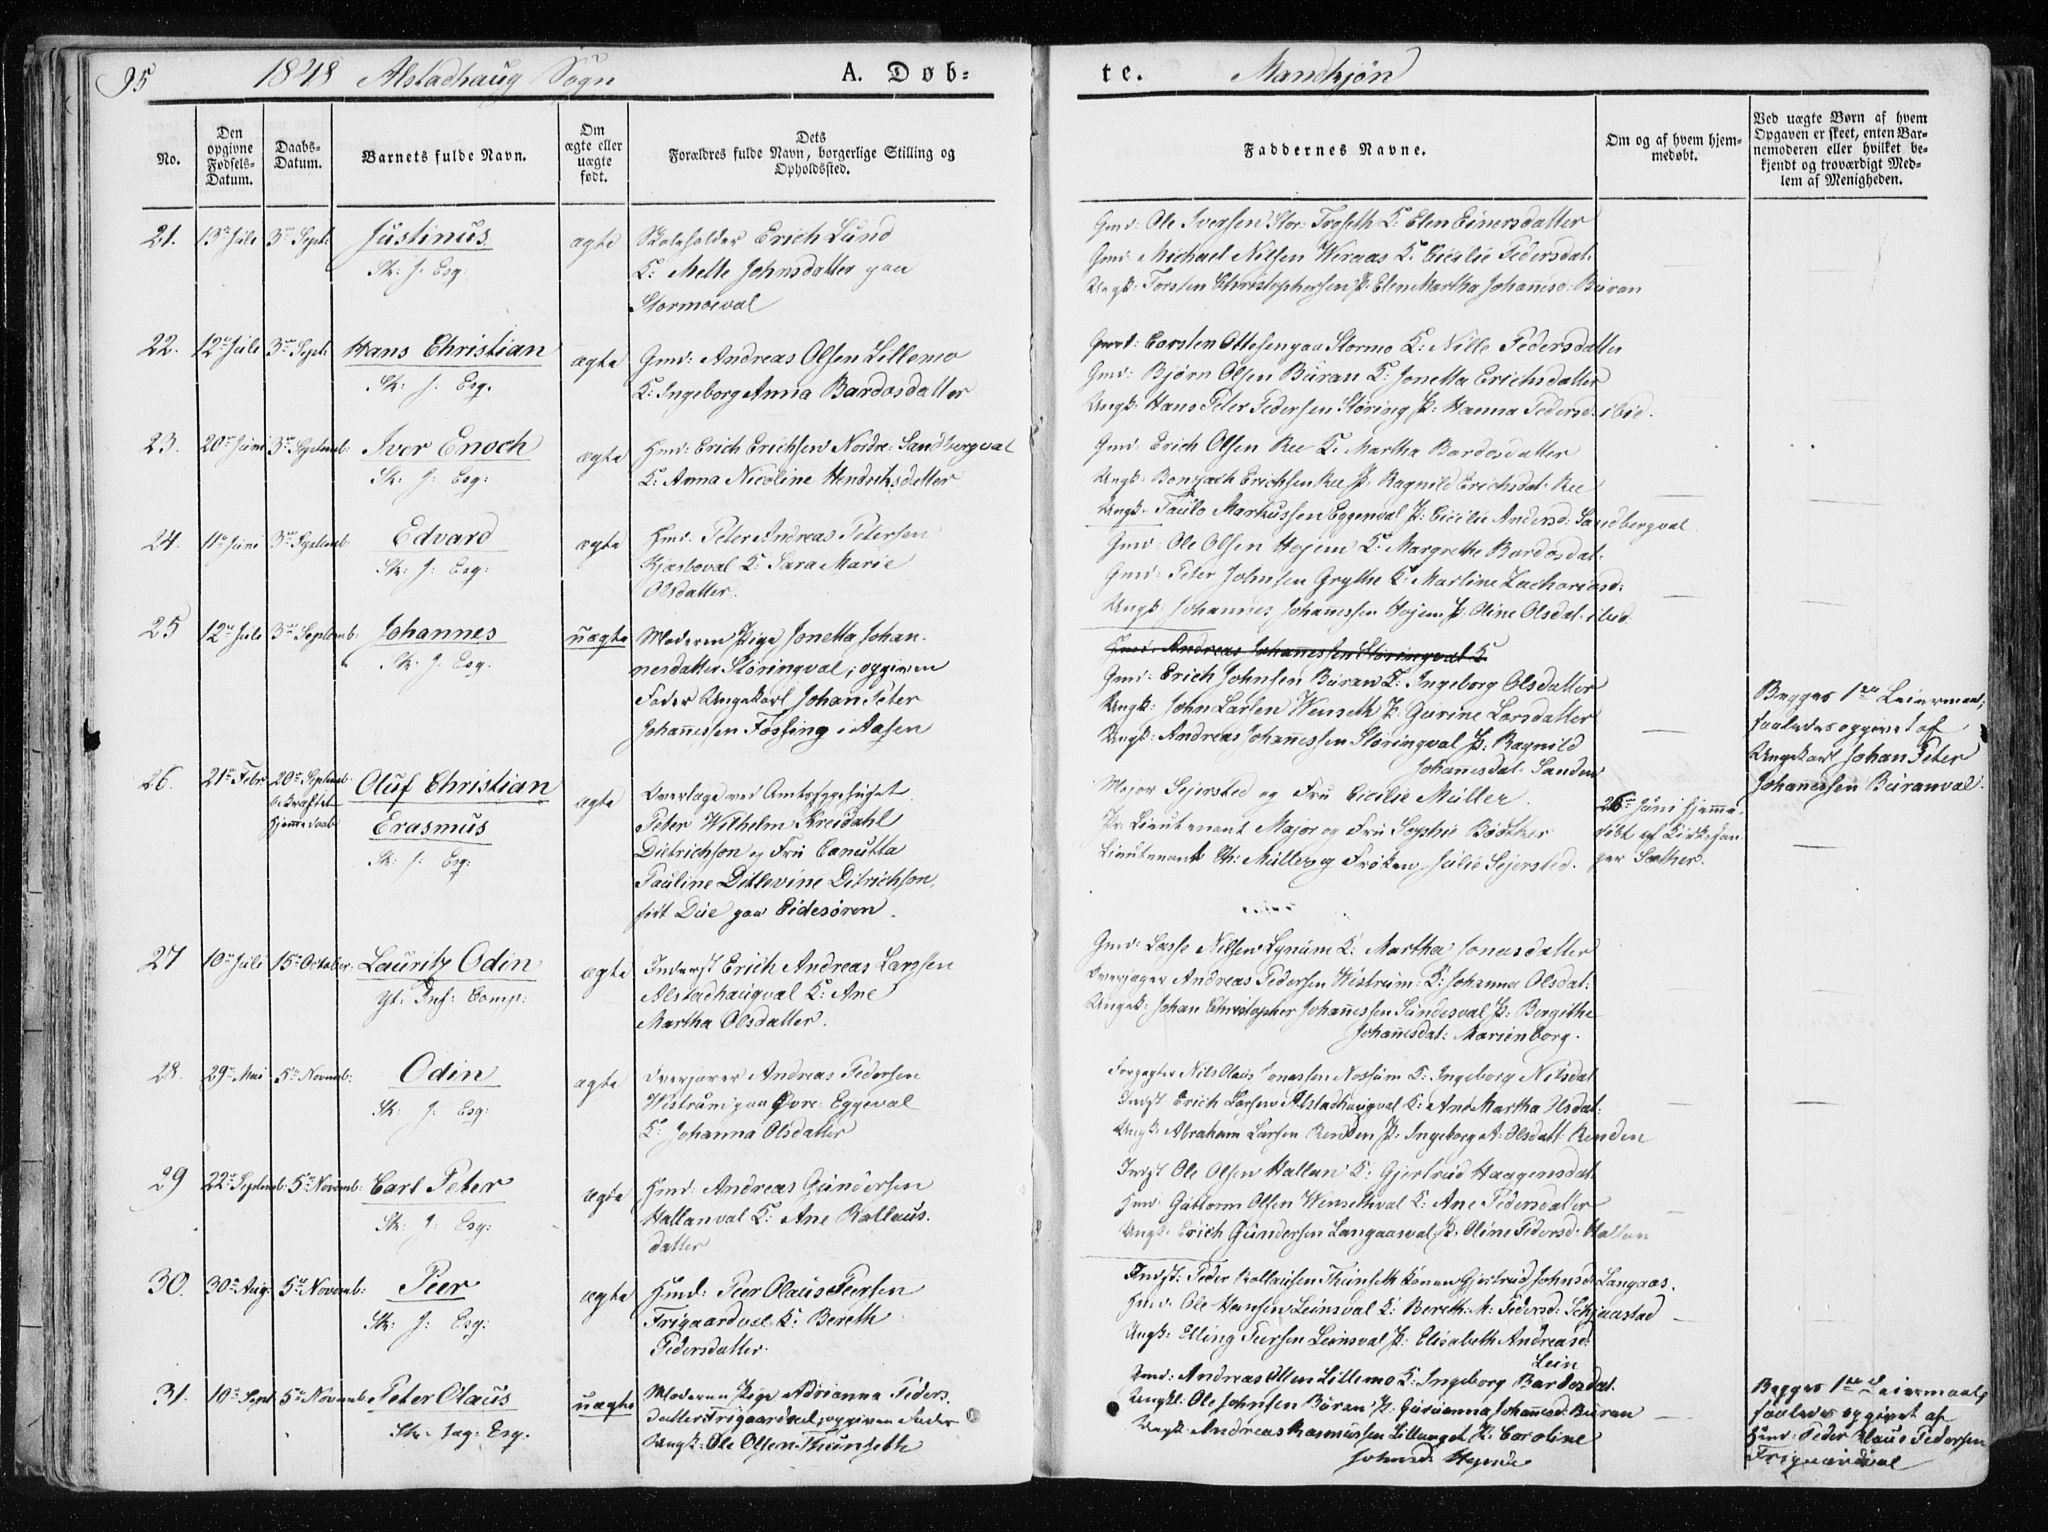 95 1848 Alstadhaug Sogn A. Døb-
te. Mandkjøn
No.
Den opgivne Fødsels-Datum.
Daabs-Datum.
Barnets fulde Navn.
Om ægte eller uægte født.
Dets
Forældres fulde Navn, borgerlige Stilling og
Opholdssted.
Faddernes Navne.
Om og af hvem hjem-
medøbt.
Ved uægte Børn af hvem
Opgaven er skeet, enten Bar-
nemoderen eller hvilket be-
kjendt og troværdigt Med-
lem af Menigheden.
21. 13de Juli 3die Sept: Justinus ægte Skoleholder Erich Lund
Sk: J: Esq:
K: Mette Johnsdatter paa
Stormoeval
Gmd: Ole Iversen Stor: Troseth K: Elen Einersdatter
Gmd: Michael Nilsen Weraas K: Cicilie Pedersdat:
Ungk: Torsten Christophersen P: Elen Martha Johannesd: Buran
22. 12te Juli 3die Sept: Hans Christian ægte Gmd: Andreas Olsen Lillemo
Sk: J: Esq.
K: Ingeborg Anna Bardosdatter
Gmd: Carsten Ottesen paa Stormo K: Nille Pedersdatter
Gmd: Bjørn Olsen Buran K: Jonetta Erichsdatter
Ungk: Hans Peter Pedersen Støring P: Hanna Pedersd: ibid.
23. 20de Juni 3die Septemb: Iver Enoch ægte Hmd: Erich Erichsen Nordre: Sandbergval
Sk: J: Esq:
K: Anna Nicoline Hendriksdatter
Gmd: Erich Olsen Ree K: Martha Bardosdatter
Ungk: Bonsach Erichsen Ree P: Ragnild Erichsdat: Ree
Ungk: Paulo Markussen Eggenval P: Cicilie Andersd: Sandbergval
24. 11te Juni 3die Septemb: Edvard ægte Hmd: Peter Andreas Petersen
Sk: J: Esq:
Kjæsboval K: Sara Marie
Olsdatter.
Gmd: Ole Olsen Hojem K: Margrethe Bardosdat:
Gmd: Peter Johnsen Grythe K: Martine Zachariasd:
Ungk: Johannes Johanessen Hojem P: Oline Olsdat: ibid:
25 12te Juli 3die Septemb: Johannes uægte Moderen Pige Jonetta Johan-
Sk: J: Esq:
nesdatter Støringval; opgiven
Fader Ungekarl Johan Peter
Johanessen Fossing i Aasen
Hmd: Andreas Johannessen Støringval K
Gmd: Erich Johnsen Buran K: Ingeborg Olsdatter
Ungk: John Larsen Wenseth P: Gurine Larsdatter
Ungk: Andreas Johannessen Støringval P: Ragnild
Johannesdat: Sanden
Begges 1ste Leiermaal;
saaledes opgivet af
Ungekarl Johan Peter
Johannessen Buranval.
26. 21de Febr 20de Septemb: bekræftet Hjemmedaab Oluf Christian ægte Overlæge ved Amtssygehuset
Erasmus
Sk: J: Esq:
Peter Wilhelm Kreidahl
Dietrichson og Fru Canutta
Pauline Ditlevine Ditrichson,
født Due paa Eidesøren.
Major Sejersted og Fru Cicilie Müller.
Pr: Lieutenant Major og Fru Sophie Bødtker
Lieutenant Ch: Müller og Frøken Julie Sejersted.
26de Juni hjemme-
døbt af Kirkesan-
ger Sæther.
27 10de Juli 15de October: Lauritz Odin ægte Inderst Erich Andreas Larssen
Yt: Inf: Comp:
Alstadhaugval K: Ane
Martha Olsdatter.
Gmd: Lasse Nilsen Lynum K: Martha Jonasdatter
Overjæger Andreas Pedersen Wistrum: K: Johanna Olsdat:
Ungk: Johan Christopher Johannessen Sundesval P: Bergithe
Johannesdat: Marienborg.
28. 29de Mai 5te Novemb: Odin ægte Overjæger Andreas Pedersen
Sk: J: Esq:
Wistrum paa Øvre: Eggeval
K: Johanna Olsdatter
Forpagter Nils Olaus Jonassen Nossum K: Ingeborg Nilsdat
Indst Erich Larsen Alstadhaugval K: Ane Martha Olsdat:
Ungk: Abraham Larsen Renden P: Ingeborg A: Olsdatt: Renden
29 22de Septemb: 5te Novemb: Carl Peter ægte Hmd: Andreas Gundersen
Sk: J: Esq:
Hallanval K: Ane Rollaus-
datter
Indst Ole Olsen Hallan K: Gjertrud Haagensdat
Hmd: Guttorm Olsen Wensethval K: Ane Pedersdatter
Ungk: Erich Gundersen Langaasval P: Oline Pedersd: Hallan
30. 30te Aug: 5te Novemb: Peer ægte Hmd: Peer Olaus Peersen
Sk: J: Esq:
Frigaardval K: Bereth
Pedersdatter
Indst: Peder Rollausen Thunseth Konen Gjertrud Johnsd: Langaas.
Hmd: Ole Hansen Leinsval K: Bereth: M: Pedersd: Schjærstad
Ungk: Elling Peersen Leinsval P: Elisabeth Andreasd:
Lein
31. 10de Sept 5te Novemb: Peter Olaus uægte Moderen Pige Adrianna Peders-
Sk: Jag: Esq.
datter Frigaardval; opgiven Fader
Ungk: Ole Olsen Thunseth
Gmd: Andreas Olsen Lillemo K: Ingeborg Bardosdat.
Ungkl: Ole Johnsen Buran P: Susanna Johannesd: Buran
Ungk: Andreas Rasmussen Lillunget P: Caroline
Johnsd: Hojem
Begges 1ste Leiermaal;
saaledes opgivet af
Hmd: Peder Olaus Pedersen
Frigaardval